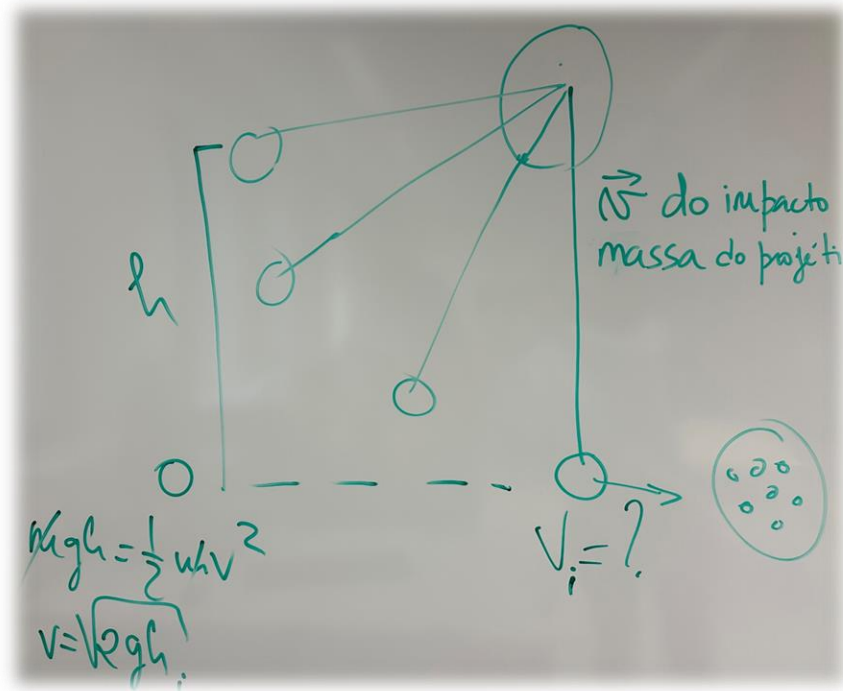 h
v⃗ do impacto
massa do projéti
mgh = 1/2 mv²
v = √2gh
Vi = ?